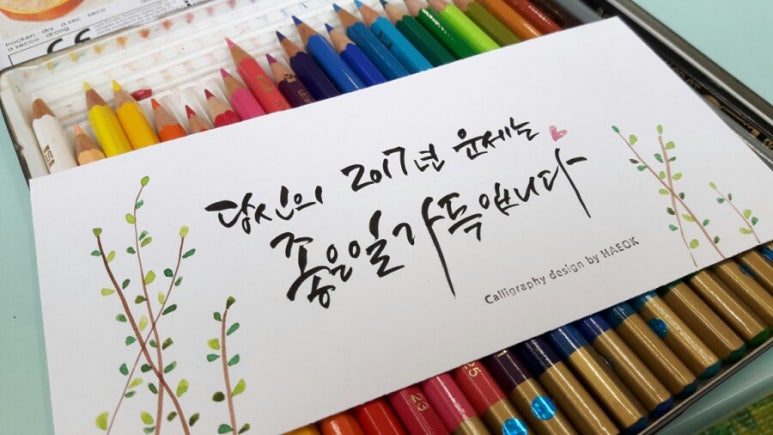 trocken dry a sec seco
a secco droog
당신의 2017년 운세는
좋은일가득입니다
Calligraphy design by HAEOK
23